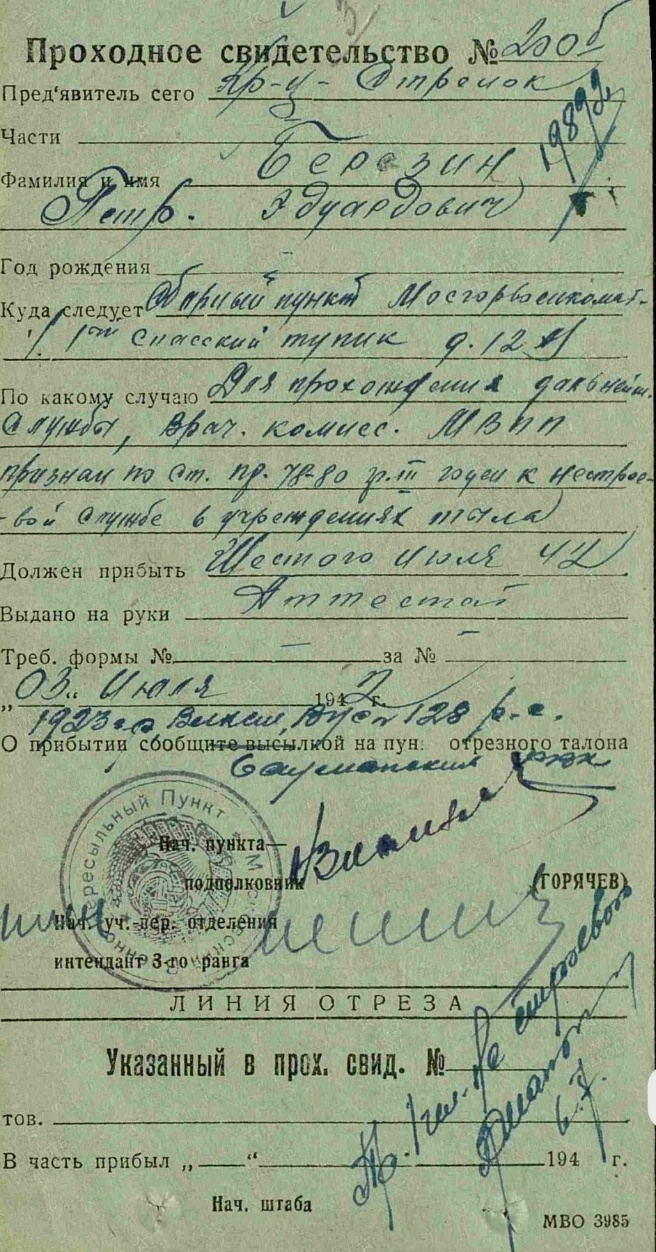 Проходное свидетельство №
Пред'явитель сего Кр-ц - Стрелок
Части
Фамилия и имя Березин
Петр. Эдуардович
Год рождения
Куда следует Сборный пункт Мосгорвоенкомат-
1ый Спасский тупик д. 12
По какому случаю Для прохождения дальнейш.
Службы, Врач. комисс. МВПП
признан по ст. пр. 78-80 гр. III годен к нестрое-
-вой службе в учреждениях тыла
Должен прибыть Шестого Июля 42
Выдано на руки Аттестат
Треб. формы № — за № —
„03„ Июля 1942 г.
1923 128
О прибытии сообщите высылкой на пун. отрезного талона
Бауманским рвк
Пересыльный Пункт
Нач. пункта—
подполковник (ГОРЯЧЕВ)
Нач. уч.-пер. отделения
интендант 3-го ранга
ЛИНИЯ ОТРЕЗА
Указанный в прох. свид. №
тов.
В часть прибыл „ “ 194 г.
Нач. штаба
МВО 3985